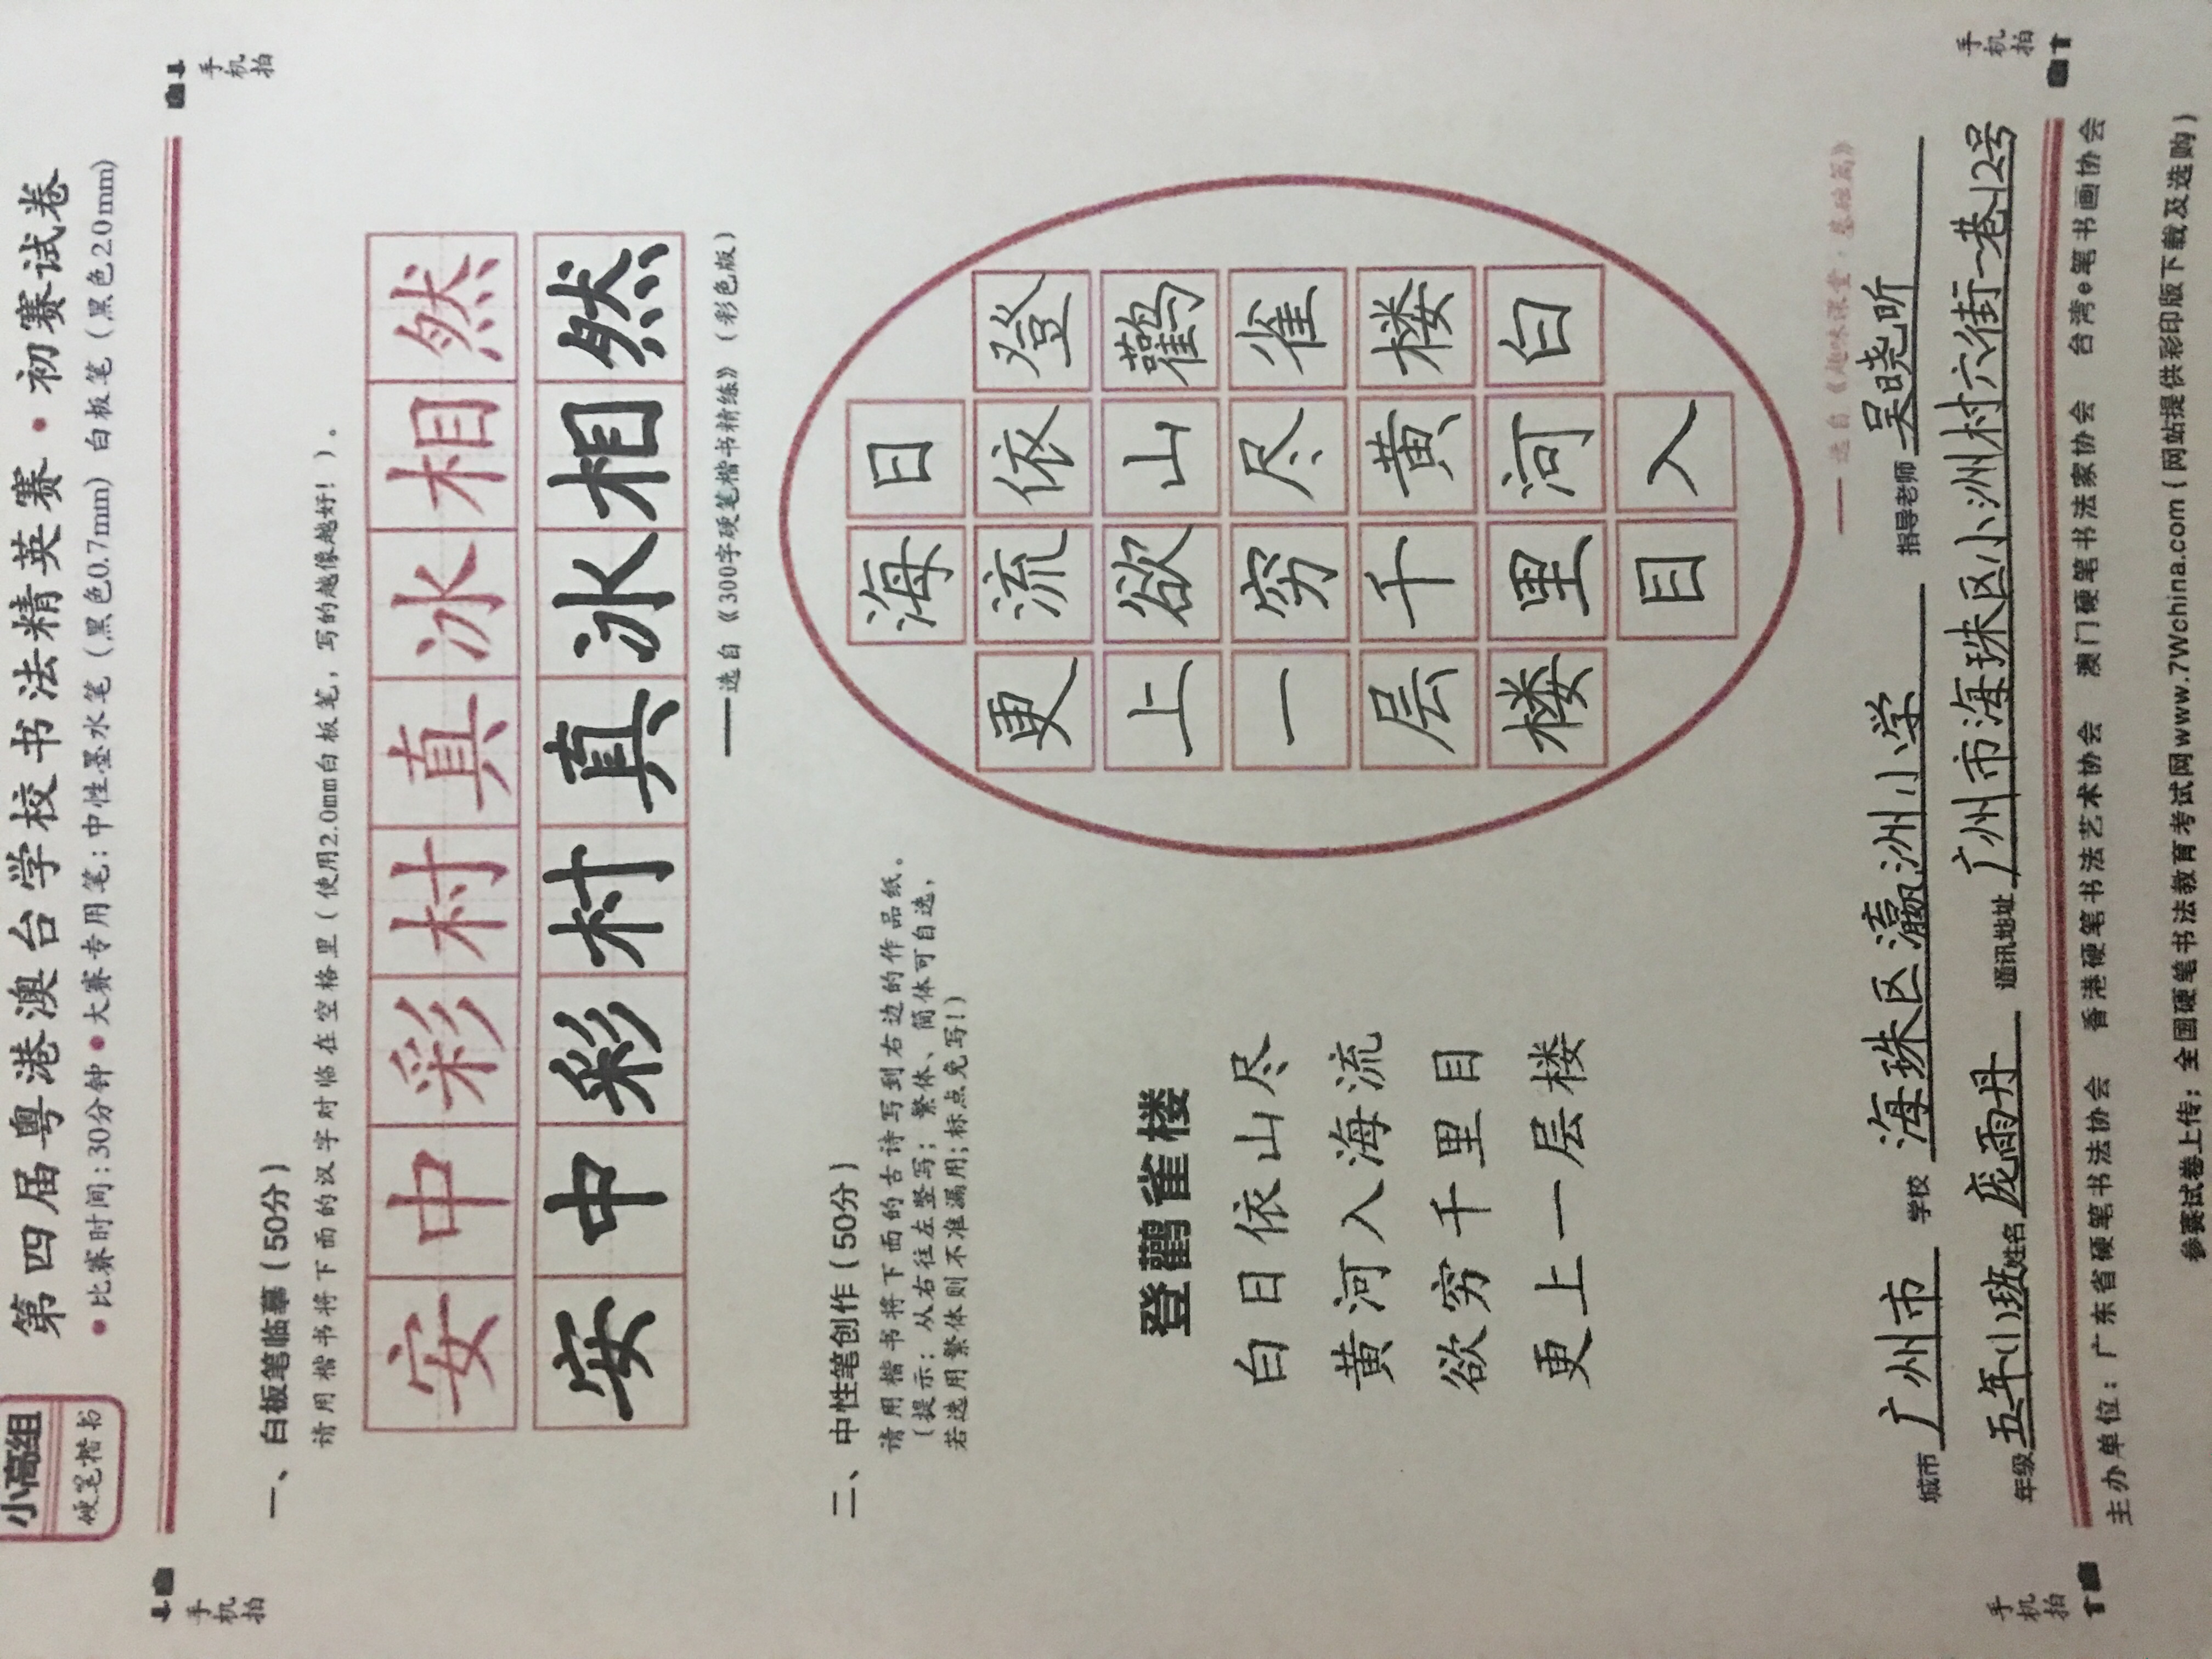 小高组
硬笔楷书
第四届粤港澳台学校书法精英赛·初赛试卷
●比赛时间:30分钟●大赛专用笔:中性墨水笔(黑色0.7mm) 白板笔(黑色2.0mm)
手机拍
手机拍
一、白板笔临摹(50分)
请用楷书将下面的汉字对临在空格里(使用2.0mm白板笔,写的越像越好!)。
安中彩村真冰相然
安中彩村真冰相然
——选自《300字硬笔楷书精练》(彩色版)
二、中性笔创作(50分)
请用楷书将下面的古诗写到右边的作品纸。
(提示:从右往左竖写;繁体、简体可自选,
若选用繁体则不准漏用;标点免写!)
登鹳雀楼
白日依山尽
黄河入海流
欲穷千里目
更上一层楼
登鹳雀楼白
日依山尽黄河入
海流欲穷千里目
更上一层楼
——选自《趣味课堂·基础篇》
城市 广州市 学校 海珠区瀛洲小学 指导老师 吴晓所
年级 五年(1)班 姓名 庞雨丹 通讯地址 广州市海珠区小洲村六街一巷12号
主办单位:广东省硬笔书法协会 香港硬笔书法艺术协会 澳门硬笔书法家协会 台湾e笔书画协会
手机拍
手机拍
参赛试卷上传:全国硬笔书法教育考试网www.7Wchina.com(网站提供彩印版下载及选购)